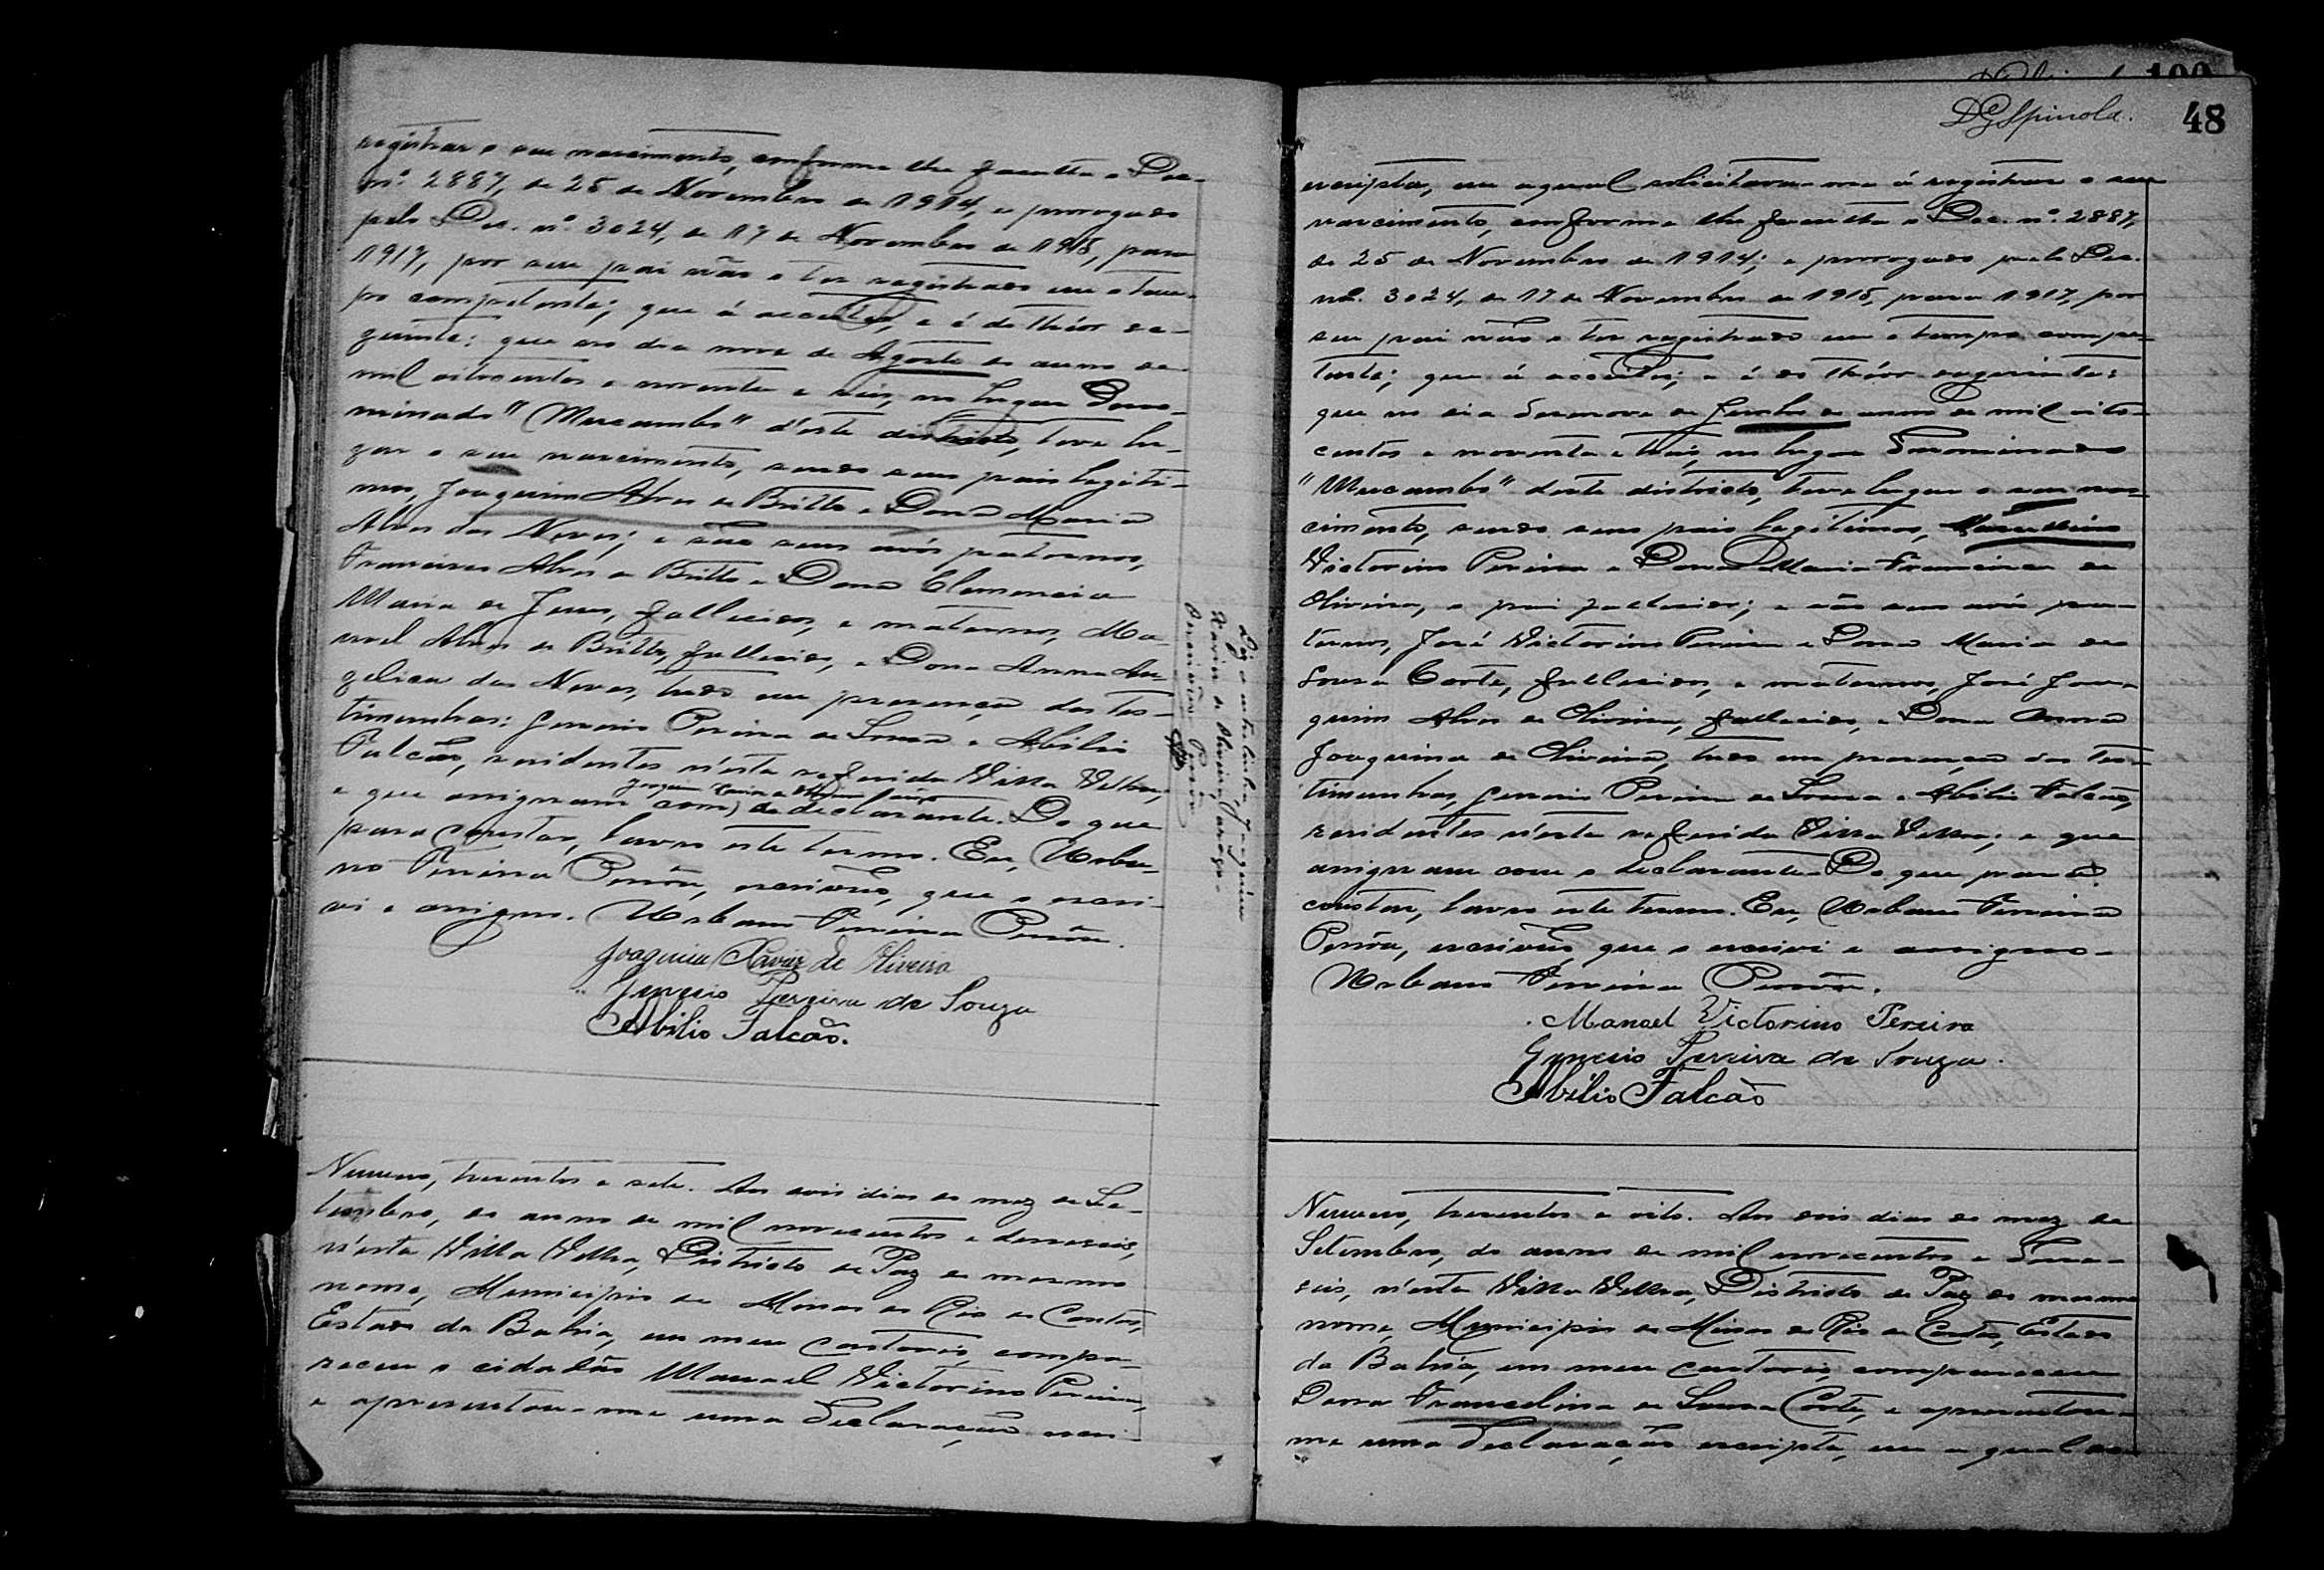 registrar o seu nascimento, conforme lhe faculta o Dec.
nº. 2887, de 25 de Novembro de 1914, e prorogado
pelo Dec. nº. 3024, de 17 de Novembro de 1915, para
1917, por seu pai não o ter registrado em o tem-
po competente; que á acceitei, e é do theór se-
guinte: que ao dia nove de Agosto do anno de
mil oitocentos e noventa e seis, no lugar deno-
minado "Mucambo" d'este districto, teve lu-
gar o seu nascimento, sendo seus pais legiti-
mos, Joaquim Alves de Britto e Dona Maria
Alves das Neves; e são seus avós paternos,
Francisco Alves de Britto e Dona Clemencia
Maria de Jesus, fallecidos, e maternos, Ma-
noel Alves de Britto, fallecido, e Dona Anna An-
gelica das Neves, tudo em presença das tes-
timunhas: Genesio Pereira de Sousa e Abilio
Falcão, residentes n'esta referida Villa Velha;
Joaquim Xavier de Oliveira
e que assignam com) do declarante. Do que
para constar, lavro este termo. Eu, Urba-
no Ferreira Pessôa, escrivão, que o escre-
vi e assigno. Urbano Ferreira Pessôa.
Joaquim Xavier de Oliveira
Genesio Pereira de Souza
Abilio Falcão.
Digo a entrelinha, Joaquim
Xavier de Oliveira, a rogo.
O escrivão Pessôa
Numero, trezentos e sete. Aos dois dias do mez de Se-
tembro, do anno de mil novecentos e deseseis,
n'esta Villa Velha, Districto de Paz do mesmo
nome, Municipio de Minas do Rio de Contas,
Estado da Bahia, em meu cartorio, compa-
receu o cidadão Manoel Victorino Pereira,
e apresentou-me uma declaração escri-
DGSpinola. 48
escripta, em a qual solicitava-me á registrar o seu
nascimento, conforme lhe faculta o Dec. nº. 2887,
de 25 de Novembro de 1914; e prorogado pelo Dec.
nº. 3024, de 17 de Novembro de 1915, para 1917, por
seu pai não o ter registrado em o tempo compe-
tente; que á acceitei; e é do theór seguinte:
que no dia desenove de Junho do anno de mil oito-
centos e noventa e tres, no lugar denominado
"Mucambo" deste districto, teve lugar o seu nas-
cimento, sendo seus pais legitimos, Marcellino
Victorino Pereira e Dona Maria Francisca de
Oliveira, o pai fallecido; e são seus avós pa-
ternos, José Victorino Pereira e Dona Maria de
Sousa Corte, fallecidos, e maternos, José Joa-
quim Alves de Oliveira, fallecido, e Dona Anna
Joaquina de Oliveira, tudo em presença das tes-
timunhas, Genesio Pereira de Sousa e Abilio Falcão,
residentes n'esta referida Villa Velha; e que
assignam com o declarante. Do que para
constar, lavro este termo. Eu, Urbano Ferreira
Pessôa, escrivão, que o escrevi e assigno.
Urbano Ferreira Pessôa.
Manoel Victorino Pereira
Genesio Pereira de Souza.
Abilio Falcão
Numero, trezentos e oito. Aos dois dias do mez de
Setembro, do anno de mil novecentos e dese-
seis, n'esta Villa Velha, Districto de Paz do mesmo
nome, Municipio de Minas do Rio de Contas, Estado
da Bahia, em meu cartorio, compareceu
Dona Francelina de Sousa Corte, e apresentou-
me uma declaração escripta, em a qual so-